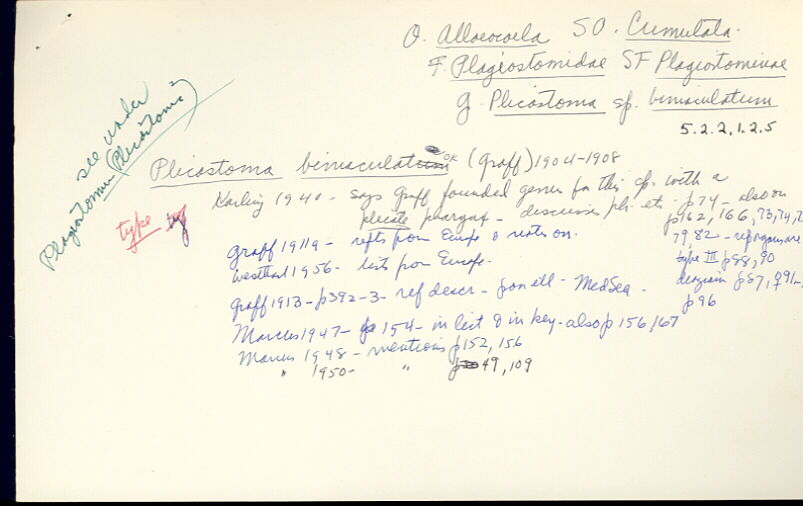 O. Alloeocoela SO. Cumulata.
F. Plagiostomidae SF Plagiostominae
g. Plicastoma sp. bimaculatum
5.2.2,1.2.5
see under
Plagiostomum (Plicastoma?)
Plicastoma bimaculatum OK (Graff) 1904-1908
type
Karling 1940 - says Graff founded genus for this sp. with a
plicate pharynx - discusses ph. etc. - p74 - also on
p162, 166, 73, 74,
79, 82 - repr organs are
type III p88, 90
p87, 91-
p96
Graff 1911a - repts from Europe & notes on.
Westblad 1956 - lists from Europe.
Graff 1913 - p392-3 - ref descr - Med Sea.
Marcus 1947 - p 154 - in list & in key - also p 156, 167
Marcus 1948 - mentions p152, 156
" 1950 - " p 49, 109